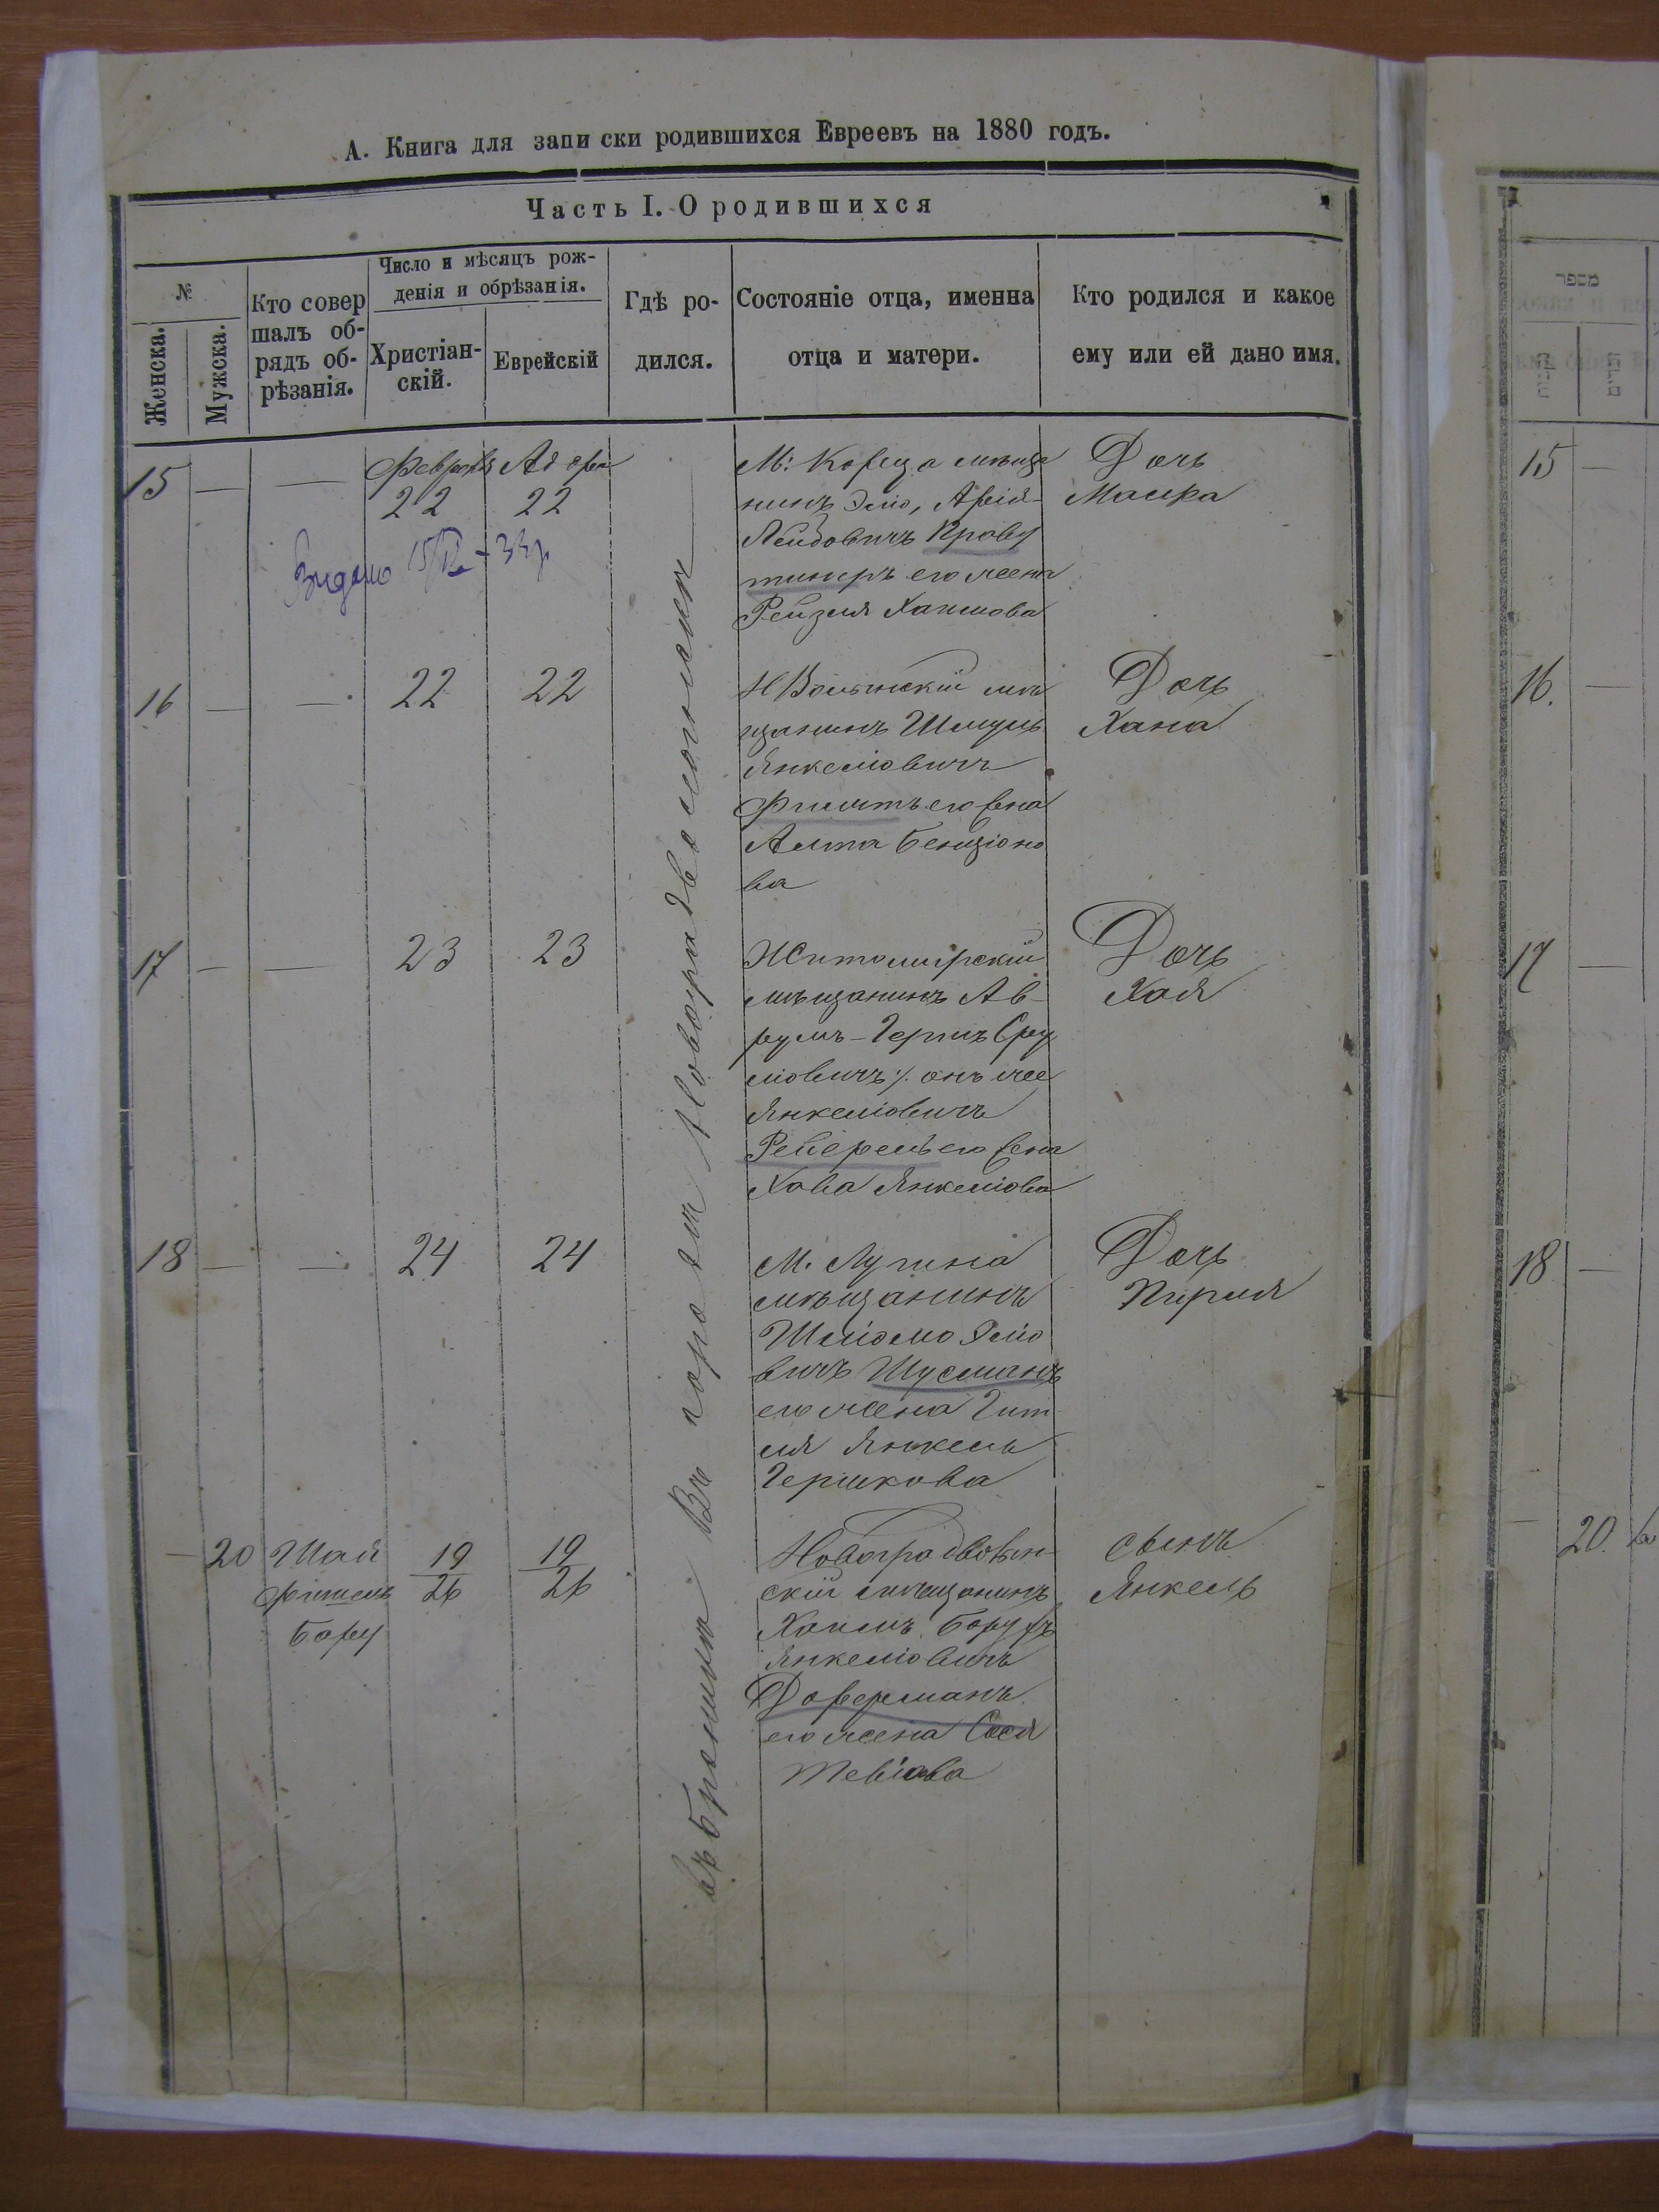 А. Книга для запи ски родившихся Евреевъ на 1880 годъ.
Часть I. О родившихся
№
Женска.
Мужска.
Кто совер
шалъ об-
рядъ об-
рѣзанія.
Число и мѣсяцъ рож-
денія и обрѣзанія.
Христіан-
скій.
Еврейскій
Гдѣ ро-
дился.
Состояніе отца, именна
отца и матери.
Кто родился и какое
ему или ей дано имя.
15 — — Февраля Адора
22 22
Видано 15/ІХ – 33р
М: Кореца мѣща
нинъ Элiо, Арiя-
Лейбовичъ Краву
его жена
Рейзля Хаимова
Дочь
Маика
16 — — 22 22
НВолынскій мѣ
щанинъ Шмуль
Янкеліовичъ
его жена
Алта Бенціоно
ва
Дочь
Хана
17 — — 23 23
Житомирскій
мѣщанинъ Ав-
румъ-Гершъ Сру
ліовичъ /. онъ же
Янкеліовичъ
его жена
Хава Янкеліова
Дочь
Хая
18 — — 24 24
М. Лугина
мѣщанинъ
Шліомо Эліо
вичъ Шусманъ
его жена Гит
ля Янкель
Гершкова
Дочь
Пирля
— 20 Шай
Фишель
Бору
19
26
19
26
Новоградволын-
скій мѣщанинъ
Хаимъ Борухъ
Янкеліовичъ
Доверманъ
его жена Сося
Тевіова
сынъ
Янкель
Въ городѣ Новоградволынскѣ
מספר
15 —
16. —
17 —
18 —
— 20.